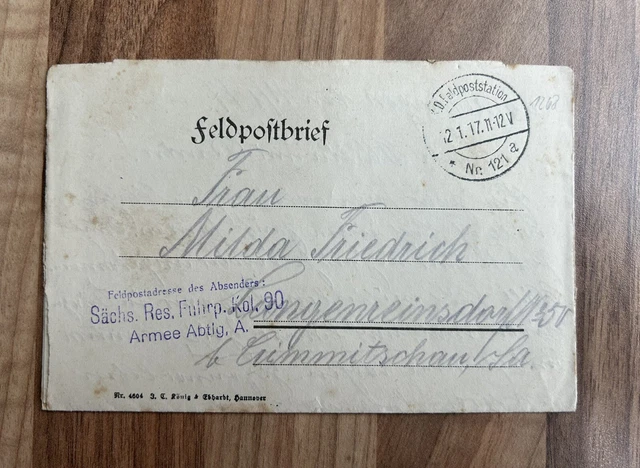 Feldpostbrief
D. Feldpoststation
2 1. 17. 11-12 V
* Nr. 121 a
1268
Frau
Milda Friedrich
Feldpostadresse des Absenders:
Sächs. Res. Fuhrp. Kol. 90
Armee Abtlg. A.
Langenreinsdorf 250
b Crimmitschau i/Sa
Nr. 4604 J. C. König & Ebhardt, Hannover